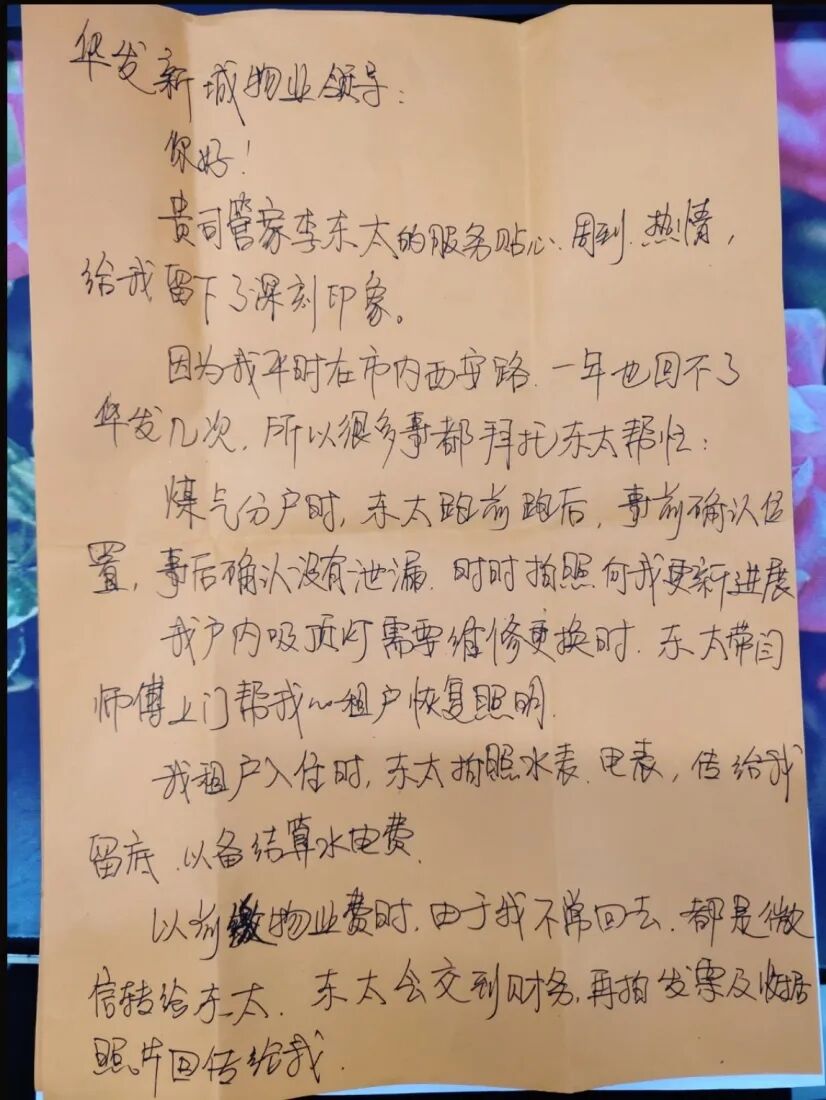 华发新城物业领导：
你好！
贵司管家李东太的服务贴心、周到、热情，
给我留下了深刻印象。
因为我平时在市内西安路、一年也回不了
华发几次，所以很多事都拜托东太帮忙：
煤气分户时，东太跑前跑后，事前确认位
置，事后确认没有泄漏，时时拍照向我更新进展
我户内吸顶灯需要维修更换时，东太带闫
师傅上门帮我心租户恢复照明。
我租户入住时，东太拍照水表、电表，传给我
留底，以备结算水电费。
以前缴物业费时，由于我不常回去，都是微
信转给东太，东太会交到财务，再拍发票及收据
照片回传给我。